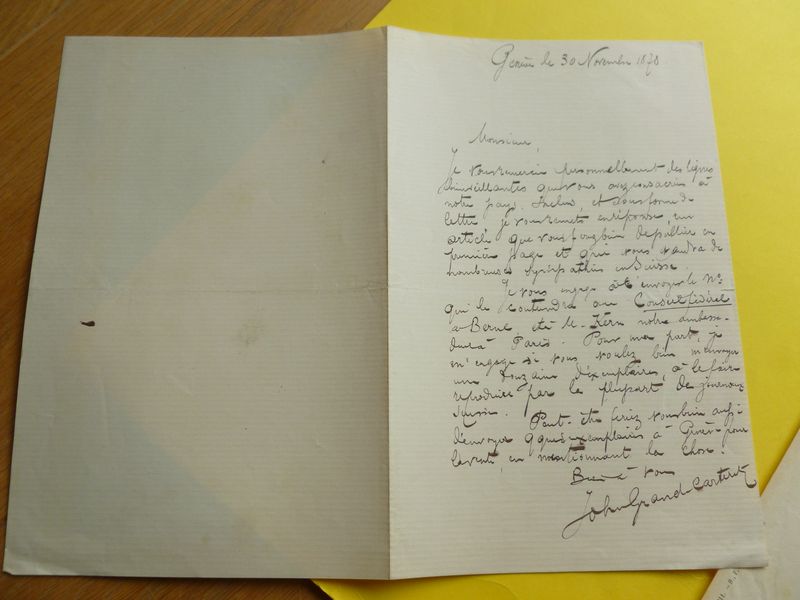 Genève le 30 Novembre 1878
Monsieur,
Je vous remercie personnellement des lignes
bienveillantes que vous avez consacrées à
notre pays. Inclus, et sous forme de
lettre je vous remets en réponse, un
article que vous ferez bien de publier en
première page et qui vous vaudra de
nombreuses sympathies en Suisse.
Je vous engage à envoyer le No
qui le contiendra au Conseil fédéral
à Berne, et à M. Kern notre ambassa-
deur à Paris. Pour ma part, je
m'engage si vous voulez bien m'envoyer
une douzaine d'exemplaires, à le faire
reproduire par la plupart des journaux
suisses. Peut-être feriez vous bien aussi
d'envoyer qques exemplaires à Genève pour
la vente, en mentionnant la chose.
Bien à vous
John Grand-Carteret